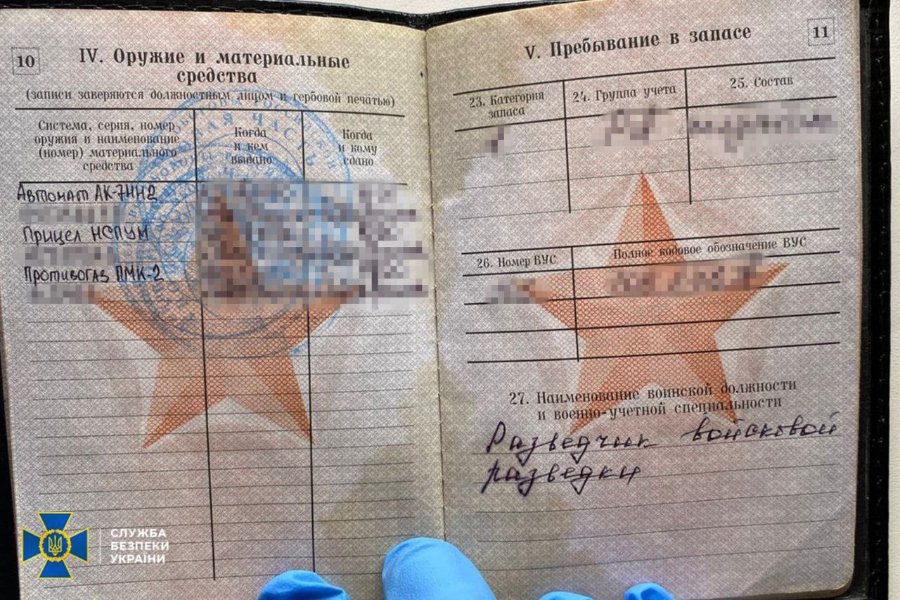 10
IV. Оружие и материальные
средства
(записи заверяются должностным лицом и гербовой печатью)
Система, серия, номер
оружия и наименование
(номер) материального
средства
Когда
и кем
выдано
Когда
и кому
сдано
Автомат АК-74Н2
Прицел НСПУМ
Противогаз ПМК-2
11
V. Пребывание в запасе
23. Категория
запаса
24. Группа учета
25. Состав
26. Номер ВУС
Полное кодовое обозначение ВУС
27. Наименование воинской должности
и военно-учетной специальности
Разведчик войсковой
разведки
СЛУЖБА
БЕЗПЕКИ
УКРАЇНИ